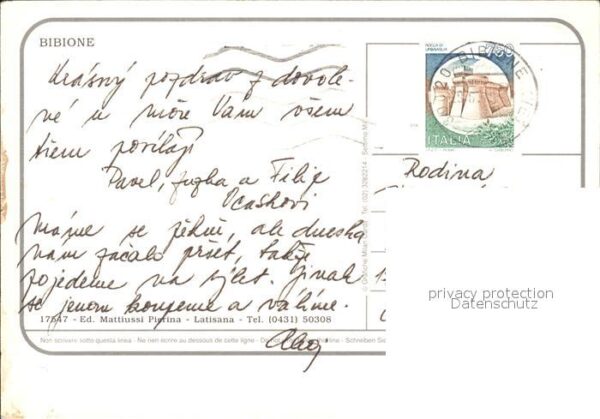 BIBIONE
Krásný pozdrav z dovole-
né u moře Vám všem
třem posílají
Pavel, a Filip
Máme se pěkně, ale dneska
nám začalo pršet, takže
pojedeme na výlet. Jinak
se jenom koupeme a válíme.
17547 - Ed. Mattiussi Pierina - Latisana - Tel. (0431) 50308
Non scrivere sotto questa linea - Ne rien écrire au dessous de cette ligne - Schreiben Sie
ROCCA DI URBISAGLIA
750
ITALIA
BIBIONE
Rodina
privacy protection
Datenschutz